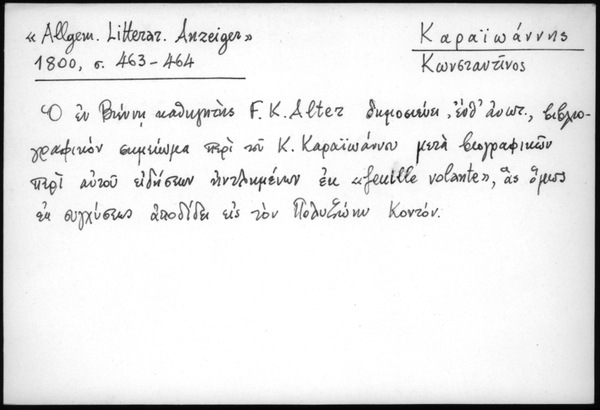 « Allgem. Litterar. Anzeiger»
1800, σ. 463-464
Καραϊωάννης
Κωνσταντῖνος
Ὁ ἐν Βιέννῃ καθηγητὴς F. K. Alter δημοσιεύει, ἔνθ' ἀνωτ., βιβλιο-
γραφικὸν σημείωμα περὶ τοῦ Κ. Καραϊωάννου μετὰ βιογραφικῶν
περὶ αὐτοῦ εἰδήσεων ἠντλημένων ἐκ «feuille volante», ἃς ὅμως
ἐκ συγχύσεως ἀποδίδει εἰς τὸν Πολυζώην Κοντόν.